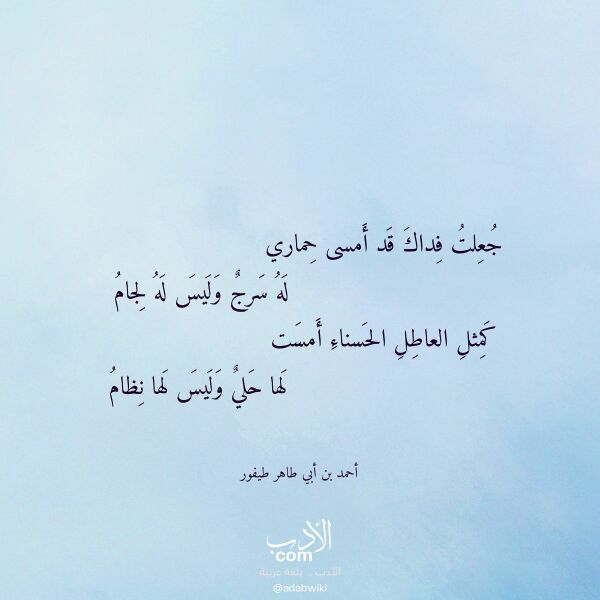 جُعِلتُ فِداكَ قَد أَمسى حِماري
لَهُ سَرجٌ وَلَيسَ لَهُ لِجامُ
كَمِثلِ العاطِلِ الحَسناءِ أَمسَت
لَها حَليٌ وَلَيسَ لَها نِظامُ
أحمد بن أبي طاهر طيفور
الأدب
com
الأدب .. بلغة عربية
@adabwiki